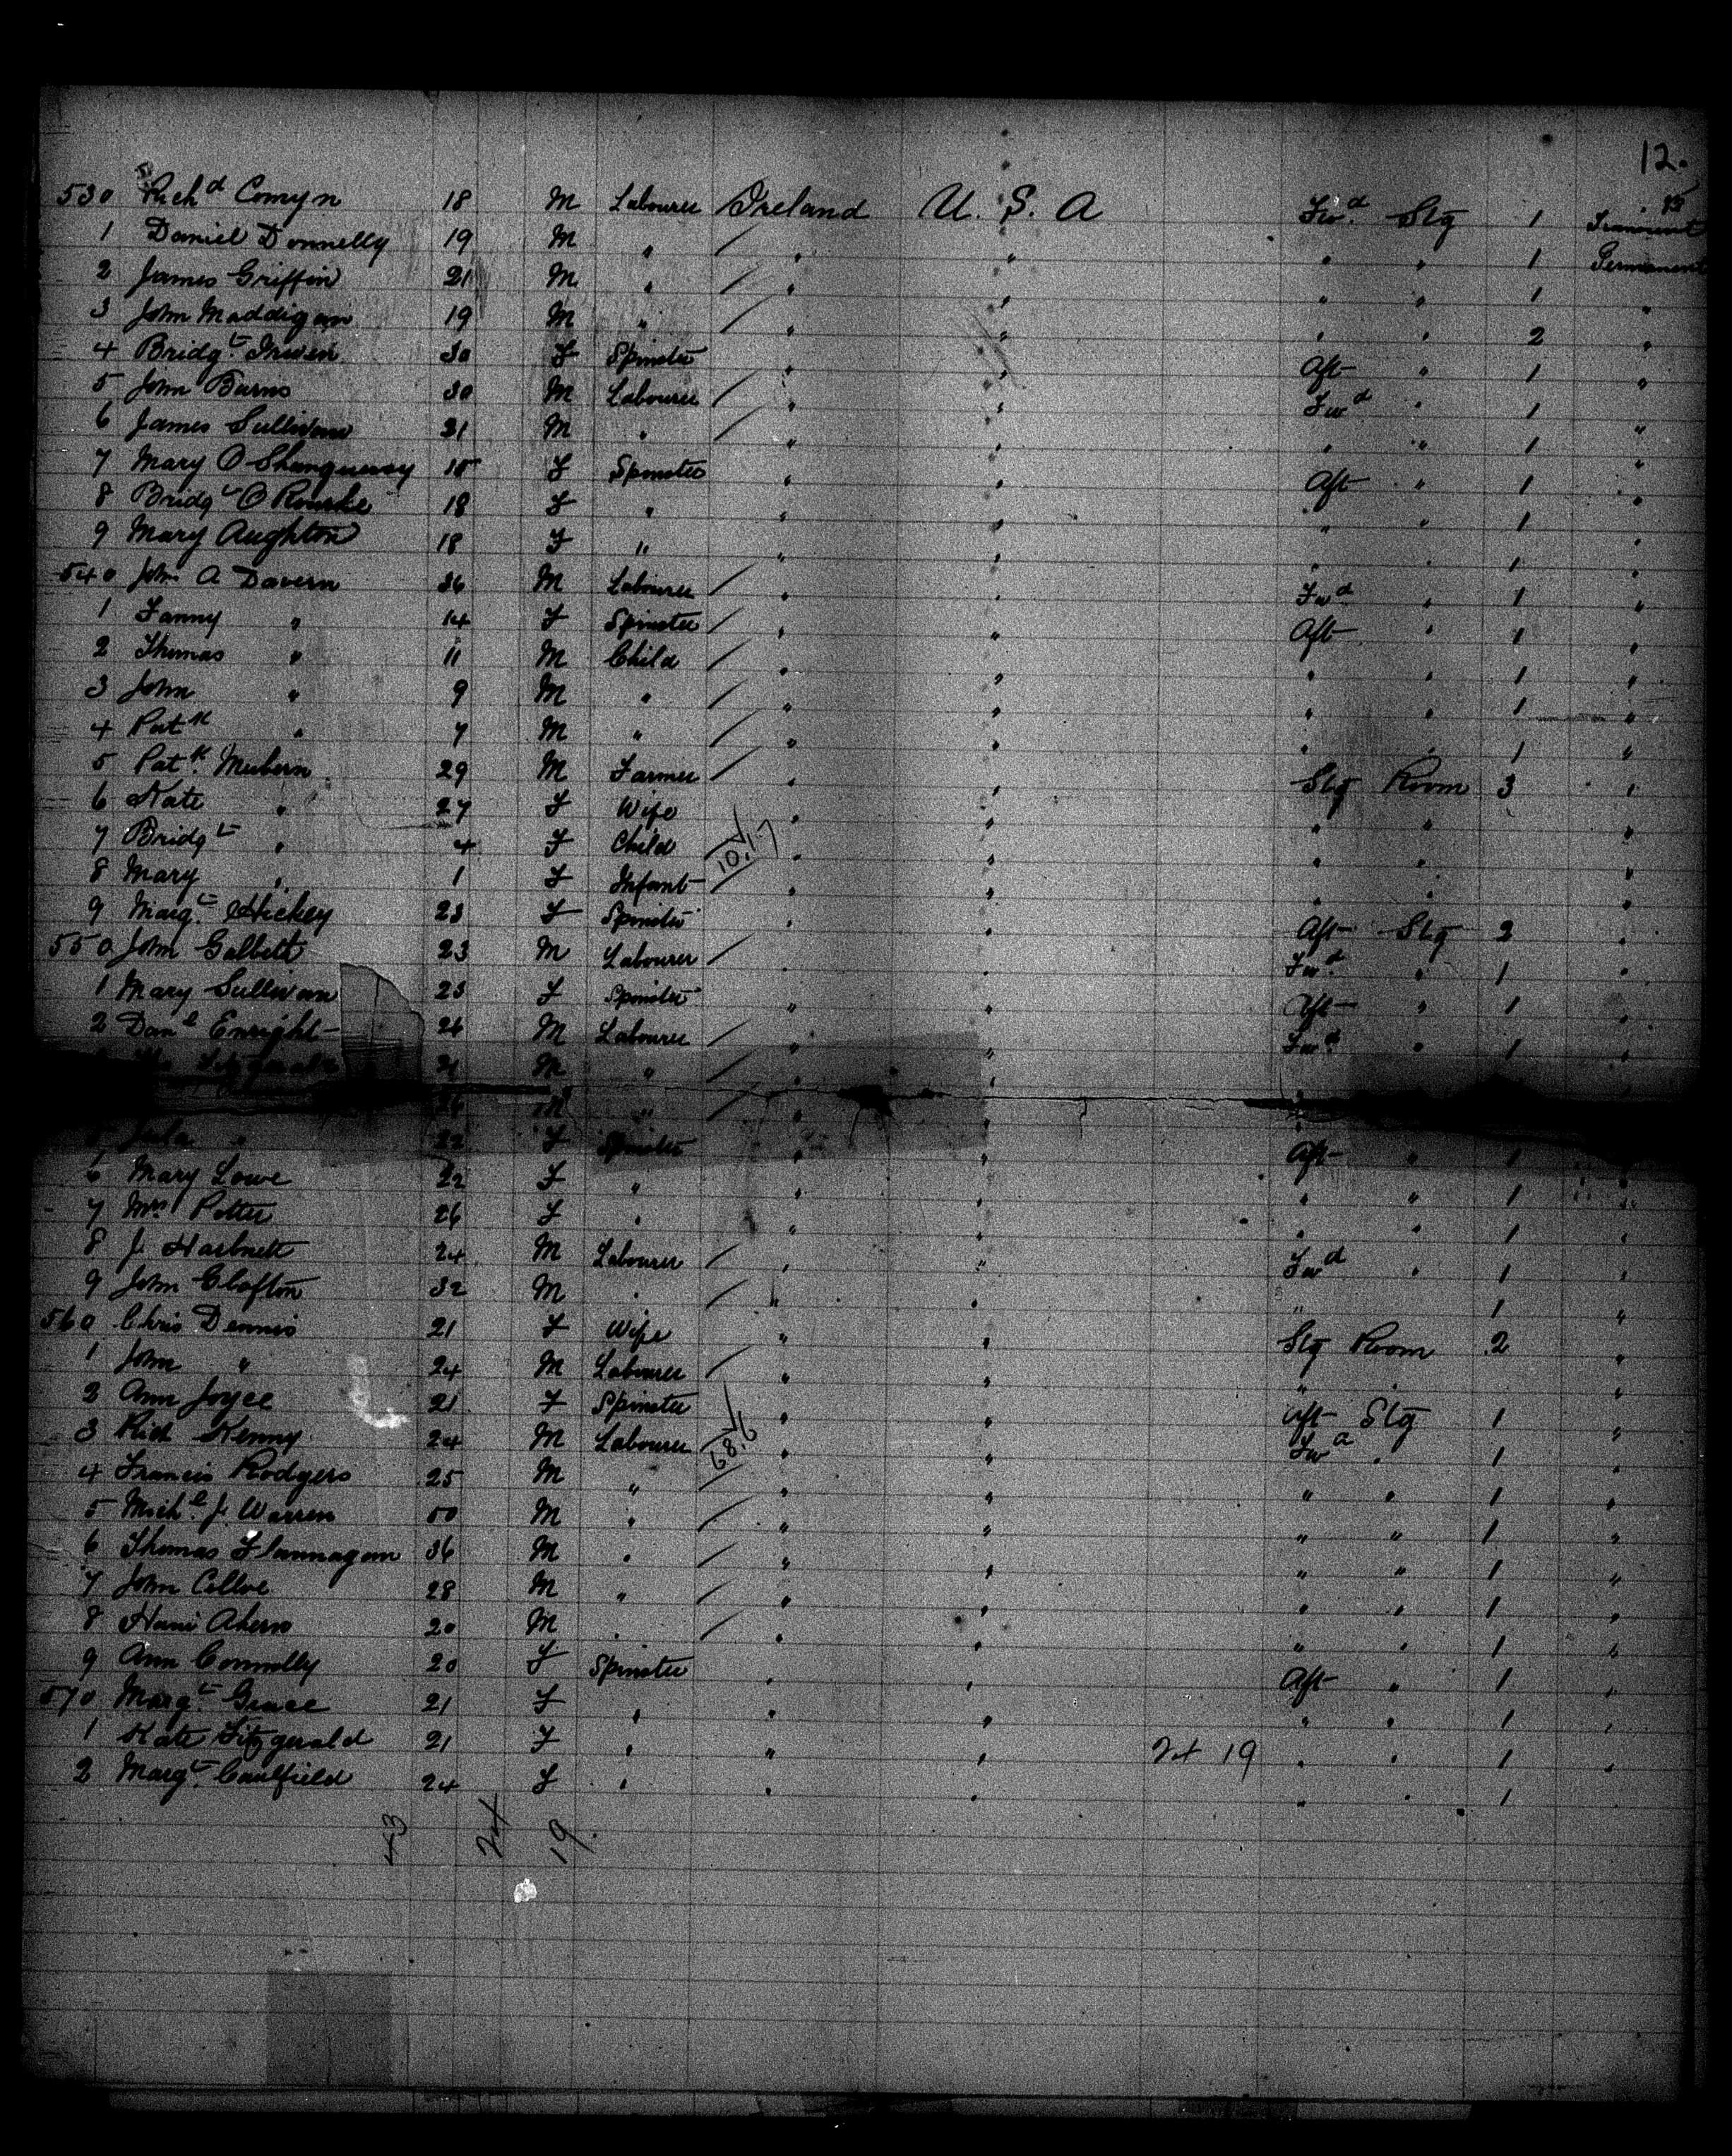 12.
530 Rich^d Comyn 18 M Labourer Ireland U. S. A Fwd. Stg 1 Transient
1 Daniel Donnelly 19 M " " " " " 1 Permanent
2 James Griffin 21 M " " " " " 1 "
3 John Maddigan 19 M " " " " " 2 "
4 Bridg^t Irwin 30 F Spinster " " Aft " 1 "
5 John Burns 30 M Labourer " " Fwd " 1 "
6 James Sullivan 21 M " " " " " 1 "
7 Mary O Shaugnessy F Spinster " " Aft " 1 "
8 Bridg^t O Rourke 18 F " " " " " 1 "
9 Mary Aughton 18 F " " " " " 1 "
540 John A Davern 36 M Labourer " " Fwd " 1 "
1 Fanny " 14 F Spinster " " Aft " 1 "
2 Thomas " 11 M Child " " " " 1 "
3 John " 9 M " " " " " 1 "
4 Pat^k " 7 M " " " " " 1 "
5 Pat^k 29 M Farmer " " Stg Room 3 "
6 Kate " 27 F Wife " " " " "
7 Bridg^t " 4 F Child 10.1.7 " " " " "
8 Mary " 1 F Infant " " " " "
9 Marg^t Hickey 23 F Spinster " " Aft Stg 2 "
550 John 23 M Labourer " " Fwd " 1 "
1 Mary Sullivan 23 F Spinster " " Aft " 1 "
2 Dan^l Enright 26 M Labourer " " Fwd " 1 "
21 M " " "
M " " "
" 22 F Spinster " " Aft " 1
6 Mary Lowe 22 F " " " " " 1 "
7 Mrs Potter 26 F " " " " " 1 "
8 J. Hartnett 24 M Labourer " " Fwd " 1 "
9 John Clafton 32 M " " " " 1 "
560 Chris Dennis 21 F Wife " " Stg Room 2 "
1 John " 24 M Labourer " " " " "
2 Ann Joyce 21 F Spinster " " Aft Stg 1 "
3 Rich Kenny 24 M Labourer 68.6 " " Fwd " 1 "
4 Francis Rodgers 25 M " " " " " 1 "
5 Mich^l J. Warren 50 M " " " " " 1 "
6 Thomas Flannagan 36 M " " " " " 1 "
7 John 28 M " " " " " 1 "
8 Ahern 20 M " " " " " 1 "
9 Ann Connolly 20 F Spinster " " Aft " 1 "
570 Marg^t Grace 21 F " " " " " 1 "
1 Kate Fitzgerald 21 F " " " 24 19 " " 1 "
2 Marg^t Caulfield 24 F " " " " " 1
43 24 19